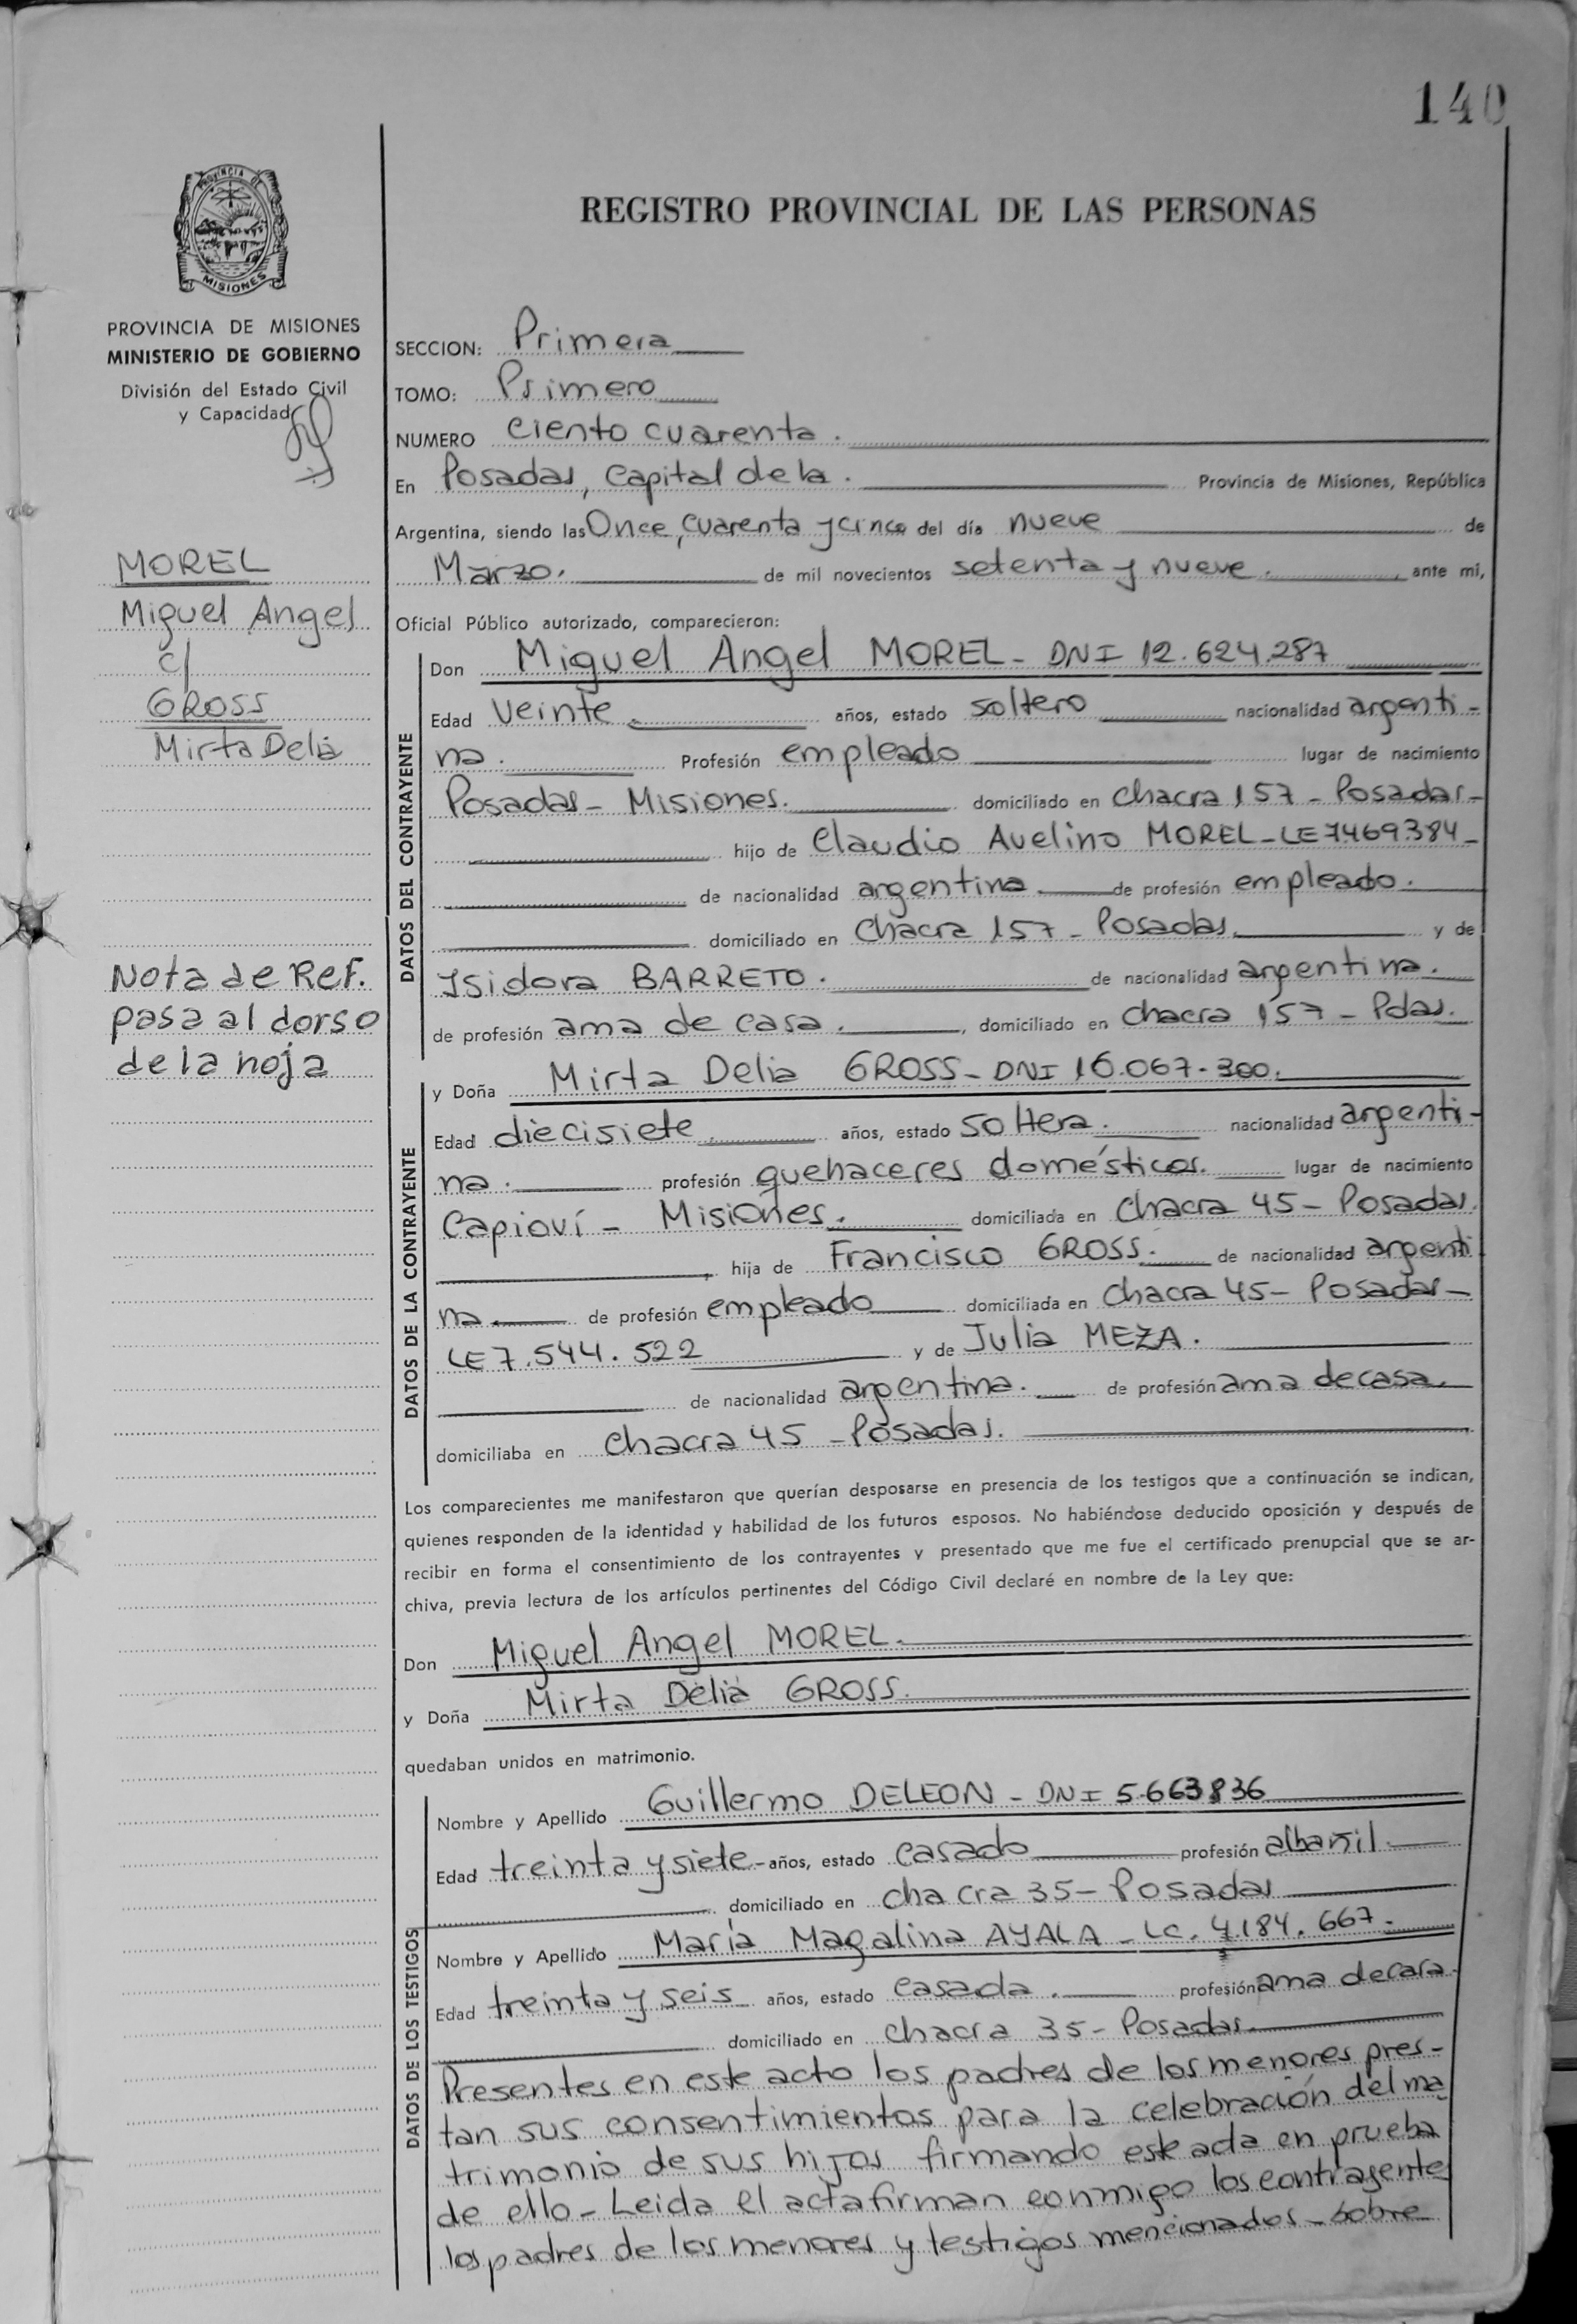 140
PROVINCIA DE
MISIONES
REGISTRO PROVINCIAL DE LAS PERSONAS
PROVINCIA DE MISIONES
MINISTERIO DE GOBIERNO
División del Estado Civil
y Capacidad
MOREL
Miguel Angel
c/
GROSS
Mirta Delia
Nota de Ref.
pasa al dorso
de la hoja
SECCION: Primera
TOMO: Primero
NUMERO Ciento cuarenta.
En Posadas, Capital de la. Provincia de Misiones, República
Argentina, siendo las Once, cuarenta y cinco del día nueve de
Marzo. de mil novecientos setenta y nueve. , ante mi,
Oficial Público autorizado, comparecieron:
DATOS DEL CONTRAYENTE
Don Miguel Angel MOREL - DNI 12.624.287
Edad Veinte. años, estado soltero nacionalidad argenti-
na. Profesión empleado lugar de nacimiento
Posadas - Misiones. domiciliado en Chacra 157 - Posadas -
hijo de Claudio Avelino MOREL - LE 7.469.384 -
de nacionalidad argentina. de profesión empleado.
domiciliado en Chacra 157 - Posadas. y de
Isidora BARRETO. de nacionalidad argentina.
de profesión ama de casa. , domiciliado en Chacra 157 - Pdas.
DATOS DE LA CONTRAYENTE
y Doña Mirta Delia GROSS - DNI 16.067.300.
Edad diecisiete. años, estado soltera. nacionalidad argenti-
na. profesión quehaceres domésticos. lugar de nacimiento
Capioví - Misiones. domiciliada en Chacra 45 - Posadas.
, hija de Francisco GROSS. de nacionalidad argenti
na de profesión empleado domiciliada en Chacra 45 - Posadas -
LE 7.544.522 y de Julia MEZA.
de nacionalidad argentina. de profesión ama de casa.
domiciliaba en Chacra 45 - Posadas.
Los comparecientes me manifestaron que querían desposarse en presencia de los testigos que a continuación se indican,
quienes responden de la identidad y habilidad de los futuros esposos. No habiéndose deducido oposición y después de
recibir en forma el consentimiento de los contrayentes y presentado que me fue el certificado prenupcial que se ar-
chiva, previa lectura de los artículos pertinentes del Código Civil declaré en nombre de la Ley que:
Don Miguel Angel MOREL.
y Doña Mirta Delia GROSS.
quedaban unidos en matrimonio.
DATOS DE LOS TESTIGOS
Nombre y Apellido Guillermo DELEON - DNI 5.663836
Edad treinta y siete - años, estado casado profesión albañil.
domiciliado en chacra 35 - Posadas
Nombre y Apellido María Magalina AYALA - LC. 4.184.667.
Edad treinta y seis años, estado casada. profesión ama de casa.
domiciliado en chacra 35 - Posadas.
Presentes en este acto los padres de los menores pres-
tan sus consentimientos para la celebración del ma
trimonio de sus hijos firmando este acta en prueba
de ello - Leida el acta firman conmigo los contrayentes
los padres de los menores y testigos mencionados - Sobre